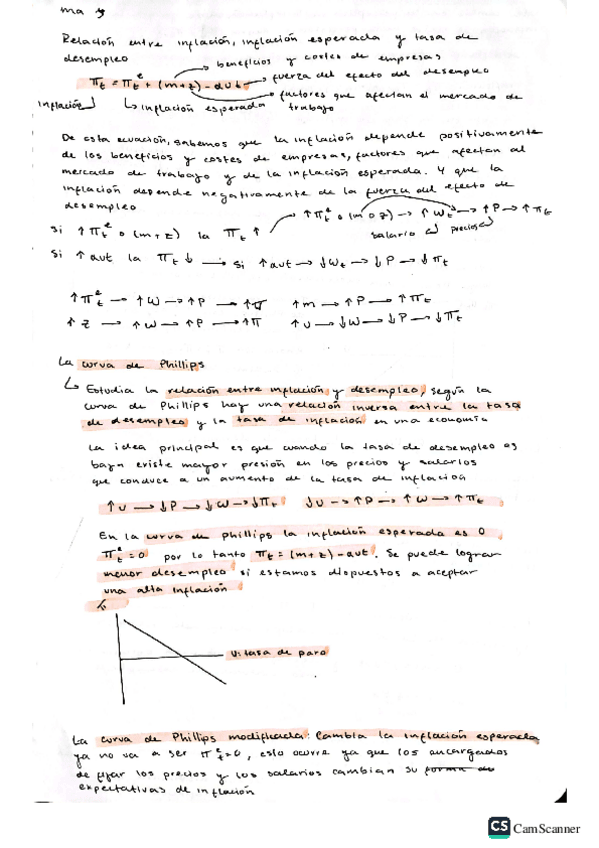 ma 9
Relación entre inflación, inflación esperada y tasa de
desempleo
beneficios y costes de empresas
π_t = π_t^e + (m+z) - αu_t
fuerza del efecto del desempleo
factores que afectan el mercado de
trabajo
inflación
inflación esperada
De esta ecuación, sabemos que la inflación depende positivamente
de los beneficios y costes de empresas, factores que afectan al
mercado de trabajo y de la inflación esperada. Y que la
inflación depende negativamente de la fuerza del efecto de
desempleo
Si ↑π_t^e o (m+z) la π_t ↑ → ↑π_t^e o (m o z) → ↑W_t → ↑P → ↑π_t
salario precios
Si ↑αut la π_t ↓ → si ↑αut → ↓W_t → ↓P → ↓π_t
↑π_t^e → ↑W → ↑P → ↑π ↑m → ↑P → ↑π_t
↑z → ↑W → ↑P → ↑π ↑u → ↓W → ↓P → ↓π_t
La curva de Phillips
Estudia la relación entre inflación y desempleo, según la
curva de Phillips hay una relación inversa entre la tasa
de desempleo y la tasa de inflación en una economía
La idea principal es que cuando la tasa de desempleo es
baja existe mayor presión en los precios y salarios
que conduce a un aumento de la tasa de inflación
↑u → ↓P → ↓W → ↓π_t ↓u → ↑P → ↑W → ↑π_t
En la curva de Phillips la inflación esperada es 0
π_t^e = 0 por lo tanto π_t = (m+z) - αut. Se puede lograr
menor desempleo si estamos dispuestos a aceptar
una alta inflación
u: tasa de paro
La curva de Phillips modificada: Cambia la inflación esperada,
ya no va a ser π_t^e = 0, esto ocurre ya que los encargados
de fijar los precios y los salarios cambian su forma de
expectativas de inflación
CS CamScanner